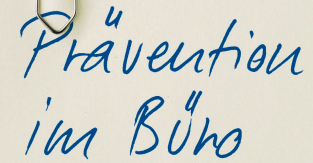 Prävention
im Büro